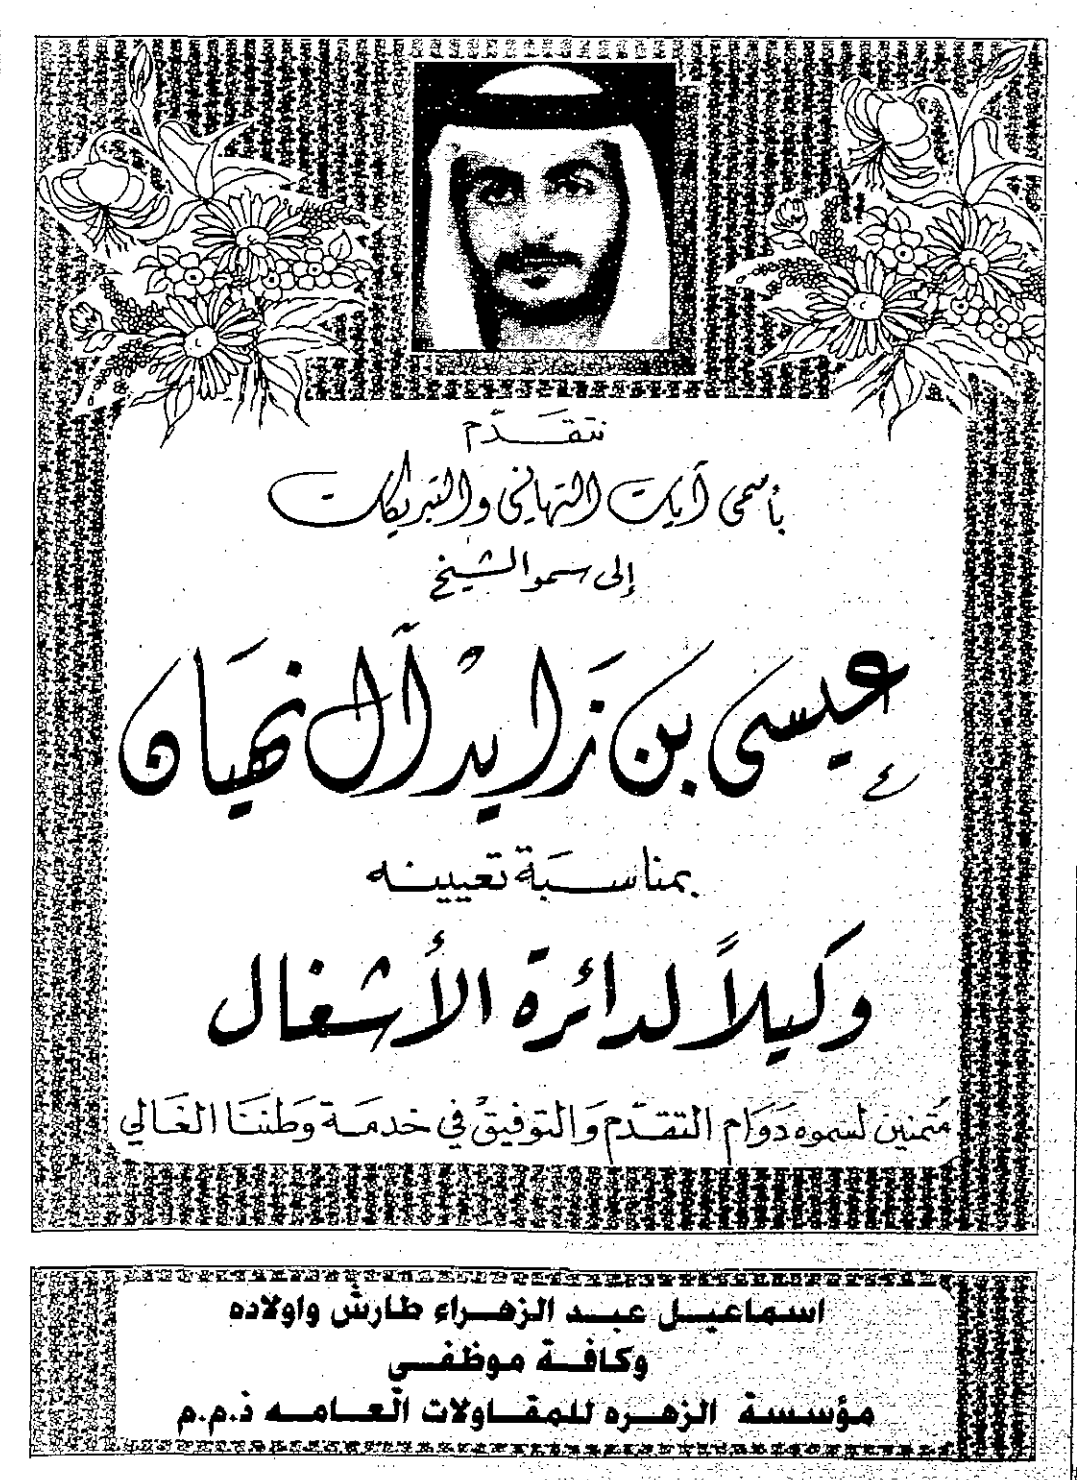 نتقدّم
بأسمى آيات التهاني والتبريكات
إلى سمو الشيخ
عيسى بن زايد آل نهيان
بمناسبة تعيينه
وكيلاً لدائرة الأشغال
مُتمنين لسموه دَوَام التقدّم وَالتوفيق في خدمَة وَطننَا الغَالي
اسماعيل عبد الزهراء طارش واولاده
وكافة موظفي
مؤسسة الزهره للمقاولات العامه ذ.م.م